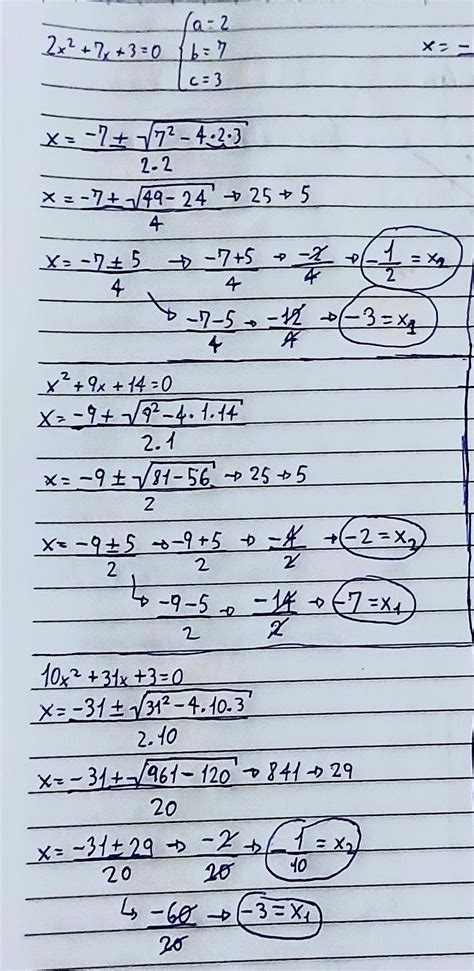 2x² + 7x + 3 = 0 { a = 2
b = 7
c = 3
x = -
x = -7 ± √7² - 4·2·3 / 2·2
x = -7 ± √49 - 24 / 4 → 25 → 5
x = -7 ± 5 / 4 → -7+5 / 4 → -2 / 4 → -1/2 = x₂
↳ -7-5 / 4 → -12 / 4 → -3 = x₁
x² + 9x + 14 = 0
x = -9 ± √9² - 4·1·14 / 2·1
x = -9 ± √81 - 56 / 2 → 25 → 5
x = -9 ± 5 / 2 → -9+5 / 2 → -4 / 2 → -2 = x₂
↳ -9-5 / 2 → -14 / 2 → -7 = x₁
10x² + 31x + 3 = 0
x = -31 ± √31² - 4·10·3 / 2·10
x = -31 ± √961 - 120 / 20 → 841 → 29
x = -31 ± 29 / 20 → -2 / 20 → -1/10 = x₂
↳ -60 / 20 → -3 = x₁